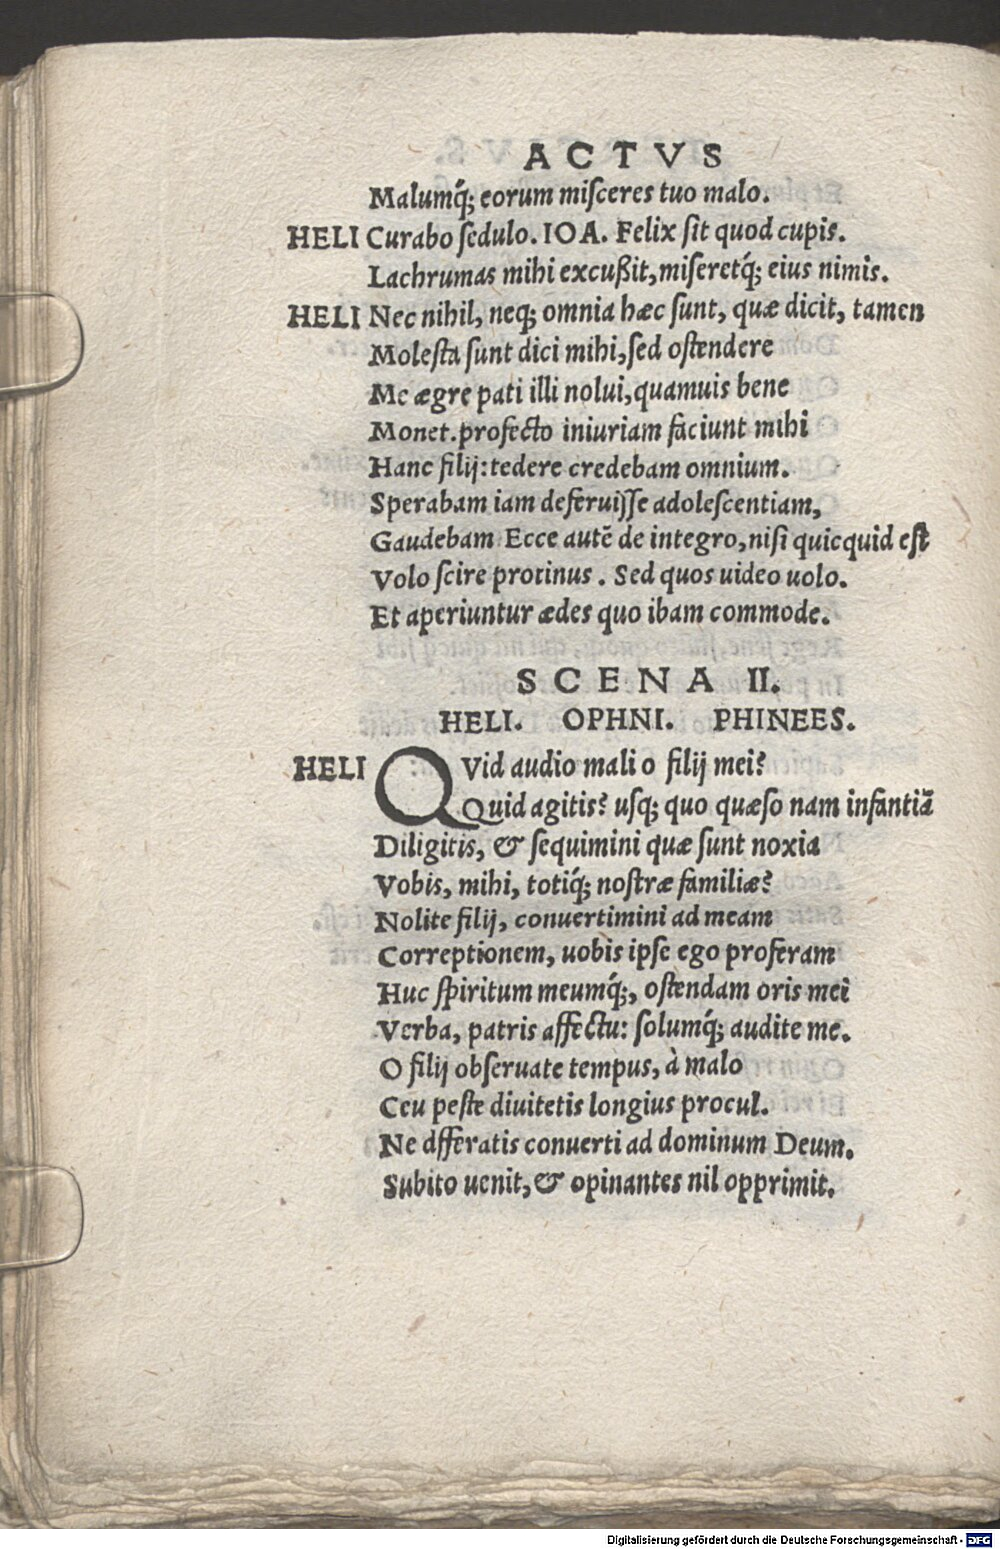 ACTVS
Malumq́; eorum miſceres tuo malo.
HELI Curabo ſedulo. IOA. Felix ſit quod cupis.
Lachrumas mihi excußit, miſeretq́; eius nimis.
HELI Nec nihil, neq; omnia hæc ſunt, quæ dicit, tamen
Moleſta ſunt dici mihi, ſed oſtendere
Me ægre pati illi nolui, quamuis bene
Monet. profecto iniuriam faciunt mihi
Hanc filij: tedere credebam omnium.
Sperabam iam deferuiſſe adoleſcentiam,
Gaudebam Ecce autē de integro, niſi quicquid eſt
Volo ſcire protinus. Sed quos uideo uolo.
Et aperiuntur ædes quo ibam commode.
SCENA II.
HELI. OPHNI. PHINEES.
HELI QVid audio mali o filij mei?
Quid agitis? uſq; quo quæſo nam infantiā
Diligitis, & ſequimini quæ ſunt noxia
Vobis, mihi, totiq́; noſtræ familiæ?
Nolite filij, conuertimini ad meam
Correptionem, uobis ipſe ego proferam
Huc ſpiritum meumq́;, oſtendam oris mei
Verba, patris affectu: ſolumq́; audite me.
O filij obſeruate tempus, à malo
Ceu peſte diuitetis longius procul.
Ne dfferatis conuerti ad dominum Deum.
Subito uenit, & opinantes nil opprimit.
Digitalisierung gefördert durch die Deutsche Forschungsgemeinschaft - DFG